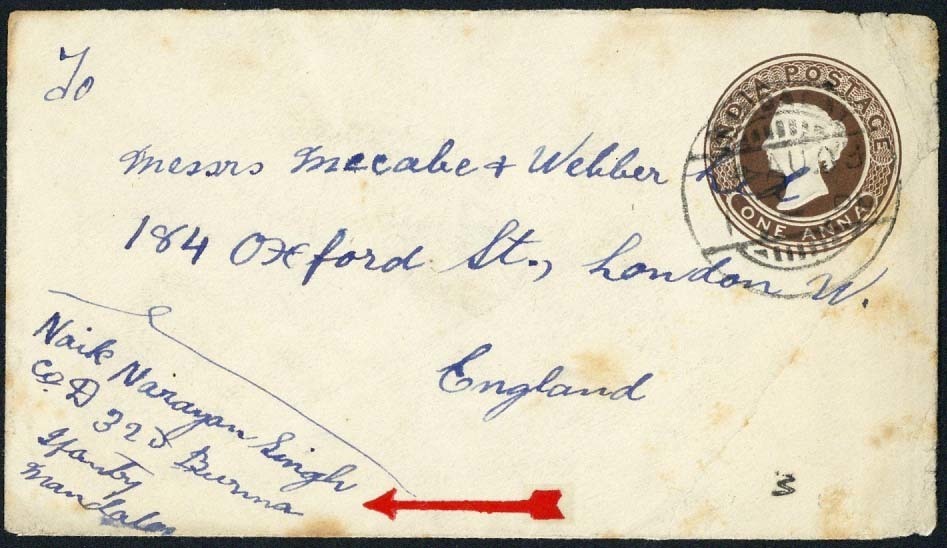 To
INDIA POSTAGE
ONE ANNA
Messrs Mccabe & Webber
184 Oxford St., London W.
England
Naik Narayan Singh
Co. D
Burma
Mandalay